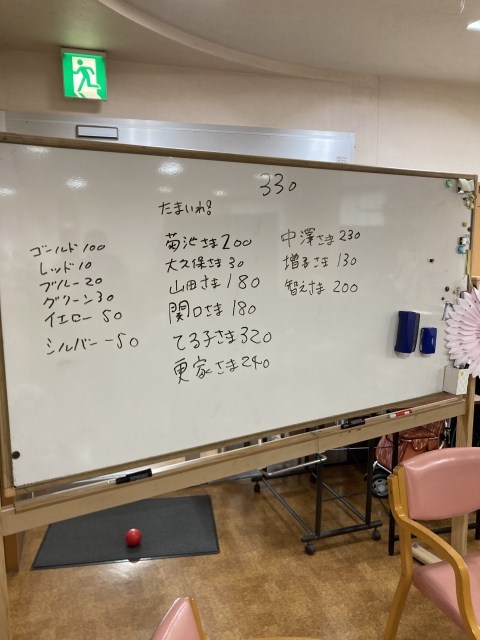 330
たまいれ
ゴールド 100
レッド 10
ブルー 20
グリーン 30
イエロー 50
シルバー -50
菊池さま 200
大久保さま 30
山田さま 180
関口さま 180
てる子さま 320
更家さま 240
中澤さま 230
さま 130
智えさま 200